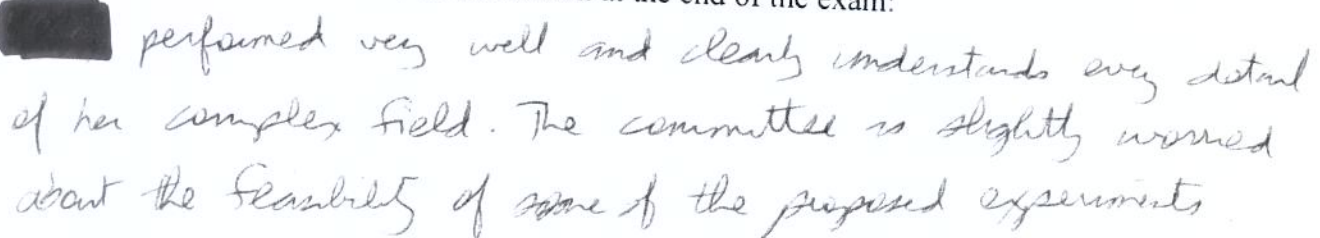 at the end of the exam:
performed very well and clearly understands every detail
of her complex field. The committee is slightly worried
about the feasibility of some of the proposed experiments